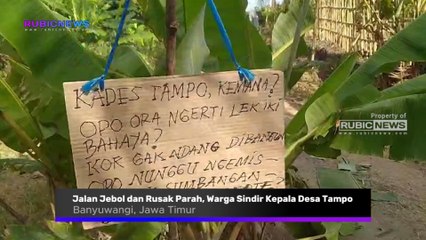 RUBICNEWS
KADES TAMPO, KEMANA?
OPO ORA NGERTI LEK IKI
BAHAYA?
KOR GAK NDANG DIBANGUN
OPO NUNGGU NGEMIS
SUMBANGAN
Property of
RUBICNEWS
Jalan Jebol dan Rusak Parah, Warga Sindir Kepala Desa Tampo
Banyuwangi, Jawa Timur